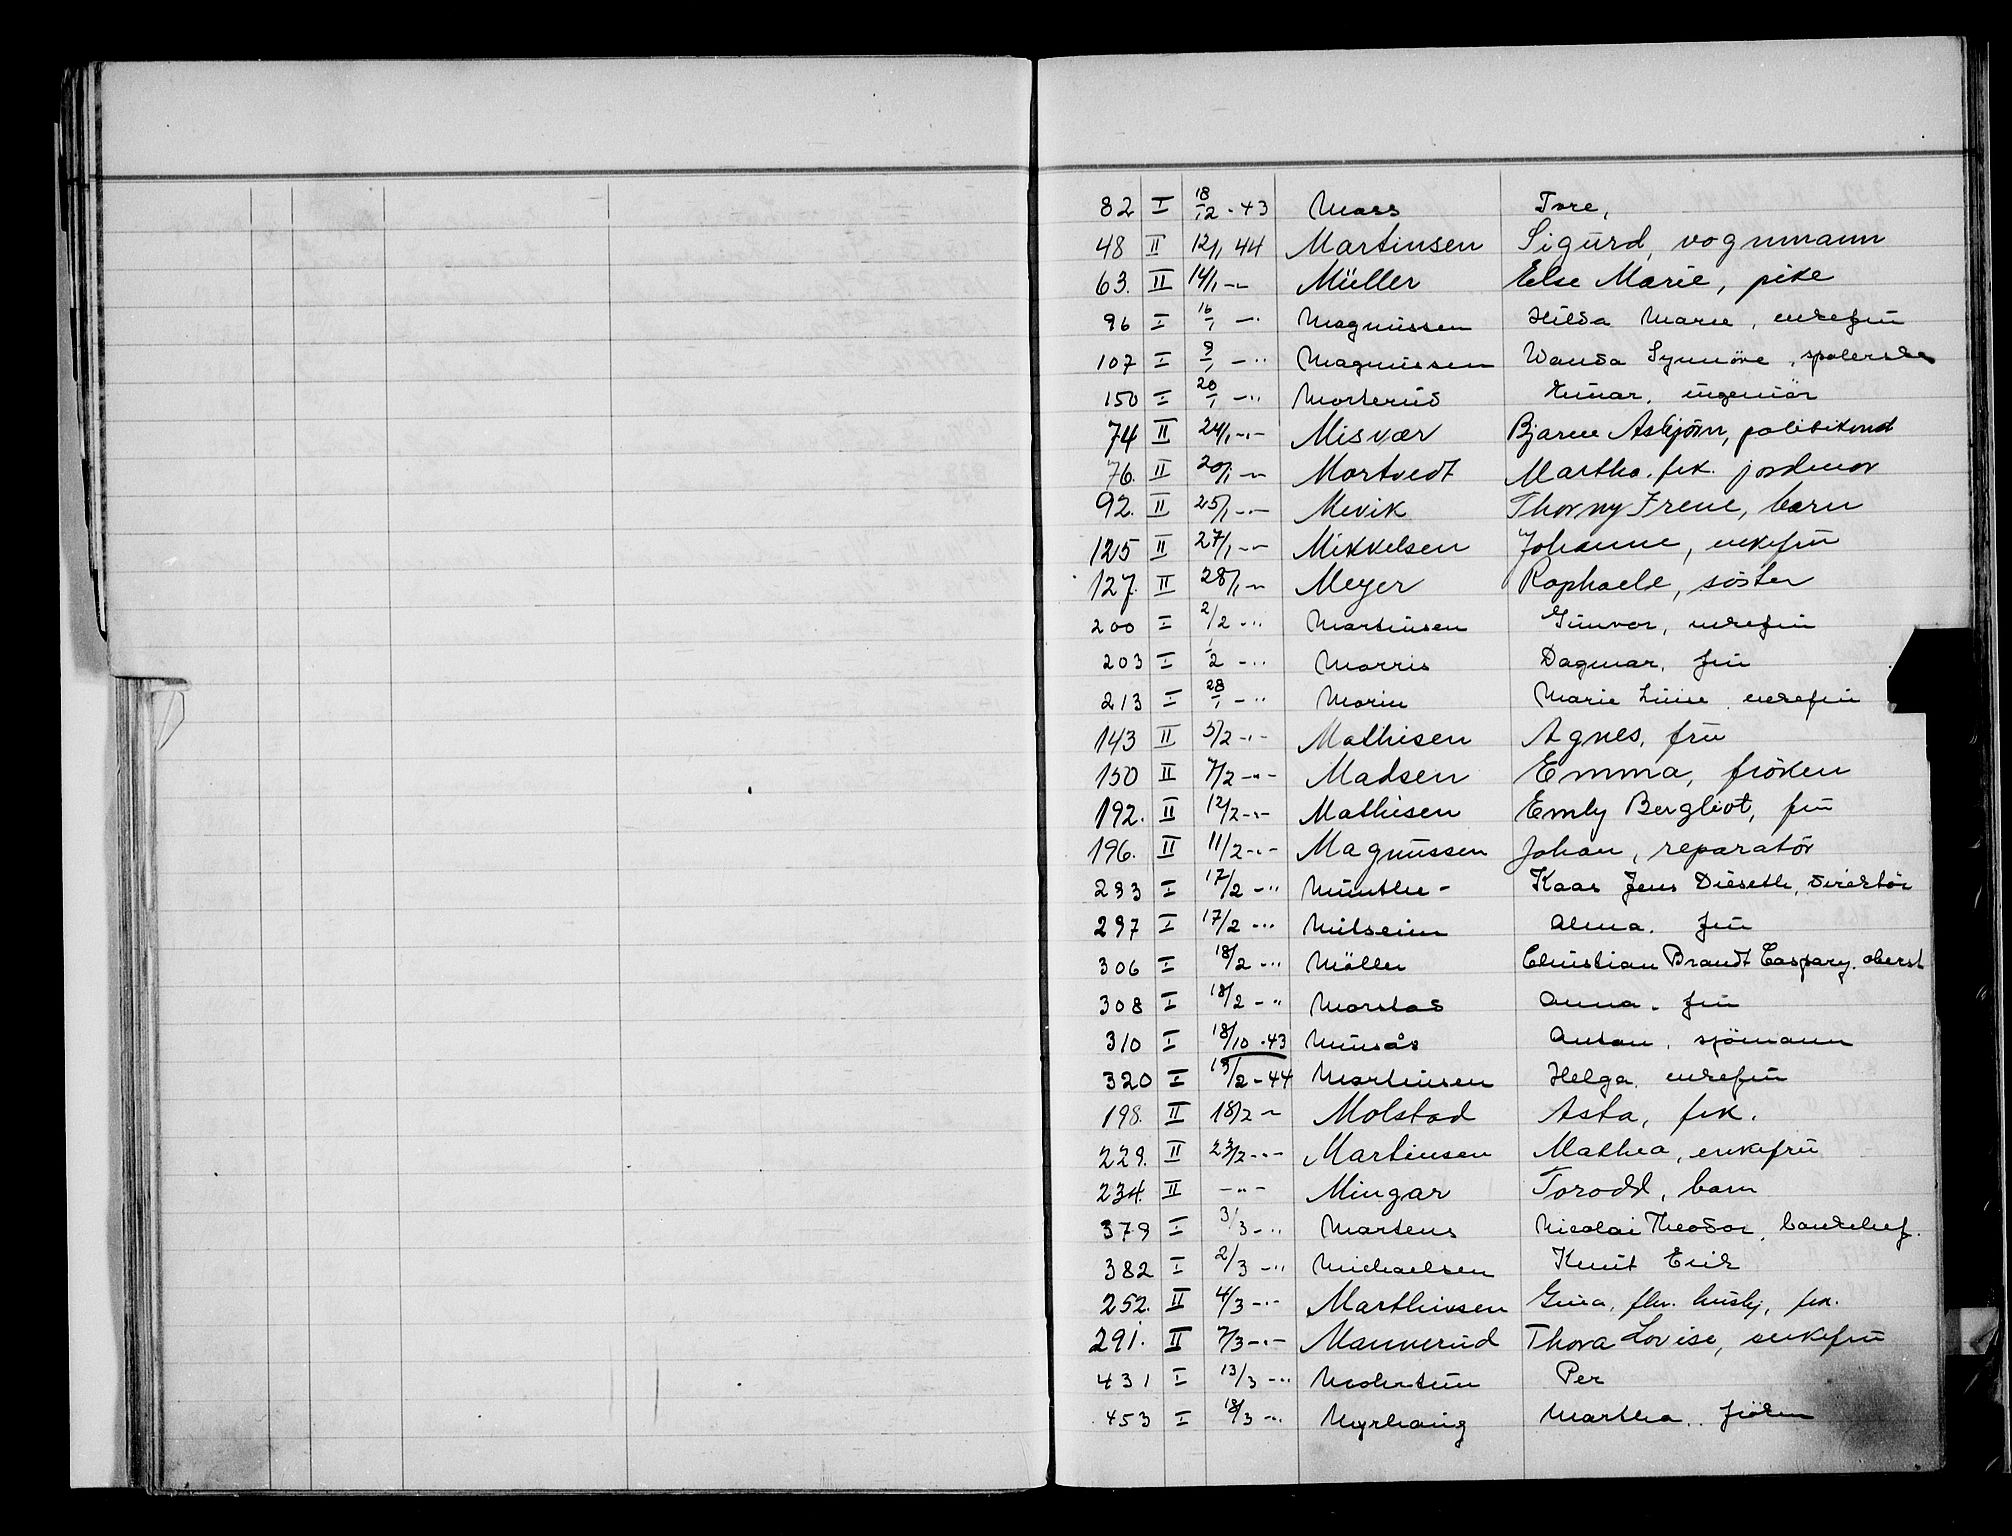 82 I 18/12 - 43 Moss Tore,
48 II 12/1 44 Martinsen Sigurd, vognmann
63. II 14/1 -"- Müller Else Marie, pike
96 I 16/1 -"- Magnussen Hilda Marie, enkefru
107 I 9/1 -"- Magnussen Wanda Synnöve, spolerske
150 I 20/1 -"- Morterud Einar, ingeniör
74 II 24/1 -"- Misvær Bjarne Asbjörn, politikonst
76. II 20/1 -"- Mortvedt Martha, frk. jordmor
92. II 25/1 -"- Mevik Thorny Irene, barn
125 II 27/1 -"- Mikkelsen Johanne, enkefru
127. II 28/1 -"- Meyer Raphaele, söster
200 I 2/2 -"- Martinsen Gunvor, enkefru
203 I 1/2 -"- Morris Dagmar, fru
213 I 28/1 -"- Morin Marie Luise, enkefru
143 II 5/2 -"- Mathisen Agnes, fru
150 II 7/2 -"- Madsen Emma, fröken
192. II 12/2 -"- Mathisen Emly Bergliot, fru
196. II 11/2 -"- Magnussen Johan, reparatör
293 I 17/2 -"- Münthe - Kaas Jens Dieseth, direktör
297 I 17/2 -"- Milseim Alma, fru
306 I 18/2 -"- Möller Christian Brandt Caspary, oberst
308 I 18/2 -"- Morstad Anna, fru
310 I 18/10 - 43 Munsås Anton, sjömann
320 I 19/2 - 44 Martinsen Helga, enkefru
198. II 18/2 -"- Molstad Asta, frk.
229. II 23/2 -"- Martinsen Mathea, enkefru
234. II -"- Mingar Torodd, barn
379 I 3/3 -"- Martens Nicolai Theodor, banksjef.
382 I 2/3 -"- Michaelsen Knut Erik
252. II 4/3 -"- Marthinsen Gina, fhv. husbj, frk.
291. II 7/3 -"- Mannerud Thora Lovise, enkefru
431 I 13/3 -"- Per
453 I 18/3 -"- Myrhaug Martha, fröken